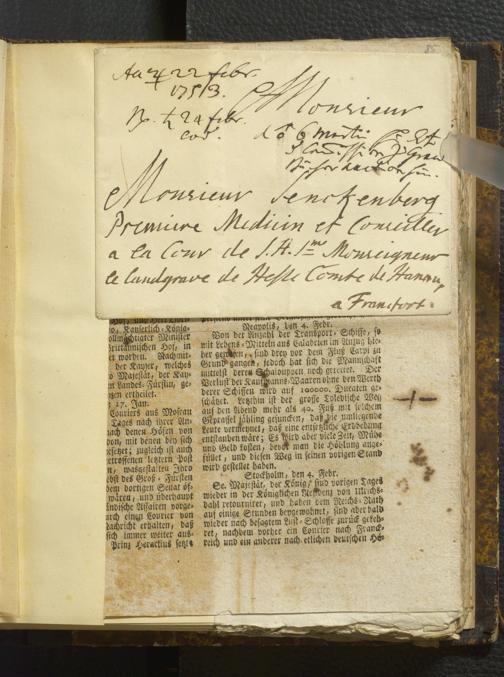 22 febr.
1753.
Monsieur
24 febr.
eod.
6 Martii
Monsieur Senckenberg
Premiere Medicin et Conseiller
a la Cour de S. H. S.me Monseigneur
le landgrave de Hesse Comte de Hanau,
a Francfort.
o, Kayserlich-Königl.
ollmächtater Minister
Hof, in
et worden. Nachmit-
der Kayser, welches
o Majestät, der Kay-
n Landes-Fürstin, ge-
gen ertheilet.
27. Jan.
Couriers aus Moscau
Tages nach ihrer An-
nach denen Höfen von
den, mit denen hin sich
esetzet; zugleich ist auch
etroffenen letztern Post
t, wasgestalten Ihro
bst des Groß-Fürsten
dem dortigen Senat öf-
wären, und überhaupt
ndische Affairen vorge-
urch einen Courier von
achricht erhalten, daß
sich immer weiter aus-
Prinz Heraclius setzte
Neapolis, den 4. Febr.
Von der Anzahl der Transport-Schiffe, so
mit Lebens-Mitteln aus Calabrien im Anzug hie-
her gewesen, sind drey vor dem Fluß Carpi zu
Grund gangen, jedoch hat sich die Mannschafft
mittelst derer Schalouppen noch gerettet. Der
Verlust der Kaufmanns-Waaren ohne den Werth
derer Schiffen wird auf 100000. Ducaten ge-
schätzet. Letzthin ist der grosse Toledische Weg
auf den Abend mehr als 40. Fuß mit solchem
Geprassel jähling gesuncken, daß die umliegende
Leute vermeynet, daß eine entsetzliche Erdbebung
entstanden wäre; Es wird aber viele Zeit, Mühe
und Geld kosten, bevor man die Höhlung ange-
füllet, und diesen Weg in seinen vorigen Stand
wird gestellet haben.
Stockholm, den 4. Febr.
Se. Majestät, der König, sind vorigen Tages
wieder in der Königlichen Residenz von Ulrichs-
dahl retourniret, und haben dem Reichs-Rath
auf einige Stunden beygewohnet, sind aber bald
wieder nach besagtem Lust-Schlosse zurück gekeh-
ret, nachdem vorher ein Courier nach Franck-
reich und ein anderer nach etlichen deutschen Hö-